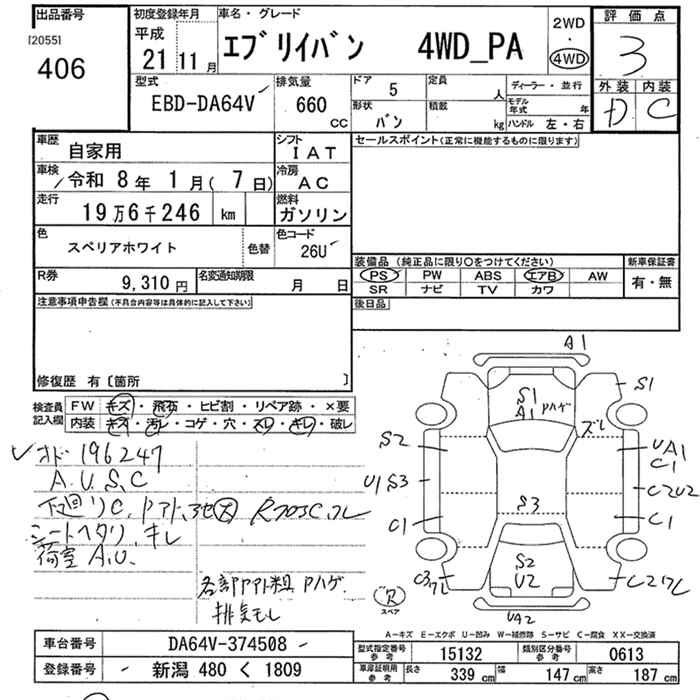 出品番号
[2055]
406
初度登録年月
平成
21 11 月
車名・グレード
エブリイバン 4WD_PA
2WD
・
4WD
評価点
3
外装 内装
D C
型式
EBD-DA64V
排気量
660 CC
ドア 5
形状 バン
定員 人
積載 kg
ディーラー・並行
モデル年式 年
ハンドル 左・右
車歴 自家用
シフト IAT
車検 令和 8年 1月( 7日)
冷房 AC
走行 19万6千246 km
燃料 ガソリン
色 スペリアホワイト
色替
色コード 26U
R券 9,310円
名変通知期限 月 日
セールスポイント(正常に機能するものに限ります)
装備品 (純正品に限り○をつけてください)
PS PW ABS エアB AW
SR ナビ TV カワ
新車保証書
有・無
後日品
注意事項申告欄(不具合内容等は具体的に記入して下さい)
修復歴 有〔箇所 〕
検査員記入欄
FW キズ・飛石・ヒビ割・リペア跡・×要
内装 キズ・汚レ・コゲ・穴・スレ・キレ・破レ
オド 196247
A.U.S.C
シートヘタリ、キレ
荷室 A.U.
各部アト粗 Pハゲ
排気モレ
A1
S1
S1
A1 Pハゲ
ズレ
S2
UA1
C1
U1 S3
C2U2
S3
C1
C1
S2
U2
R
スペア
UA2
A-キズ E-エクボ U-凹み W-補修跡 S-サビ C-腐食 XX-交換済
車台番号 DA64V-374508
登録番号 新潟 480 く 1809
型式指定番号 参考 15132
類別区分番号 参考 0613
車庫証明用 参考 長さ 339 cm 幅 147 cm 高さ 187 cm